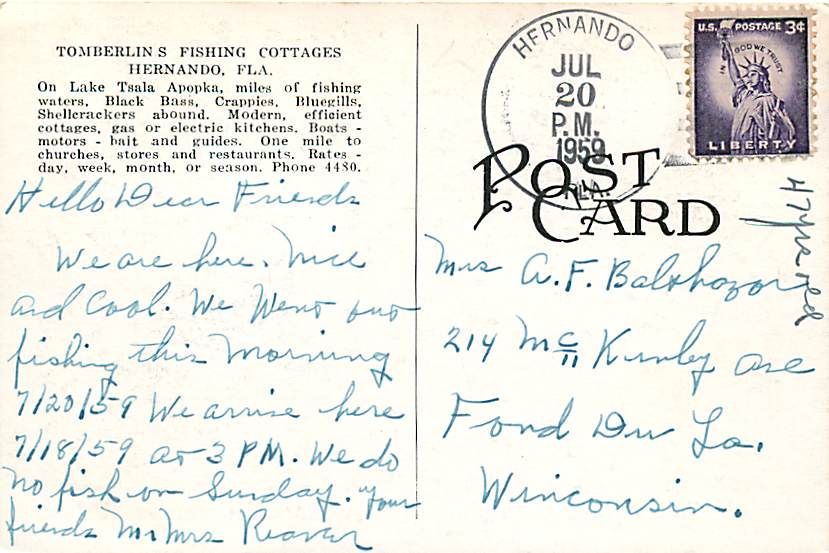 TOMBERLIN S FISHING COTTAGES
HERNANDO, FLA.
On Lake Tsala Apopka, miles of fishing
waters, Black Bass, Crappies, Bluegills,
Shellcrackers abound. Modern, efficient
cottages, gas or electric kitchens. Boats -
motors - bait and guides. One mile to
churches, stores and restaurants. Rates -
day, week, month, or season. Phone 4480.
Hello Dear Friends
We are here. Nice
and Cool. We Went out
fishing this Morning
7/20/59 We arrise here
7/18/59 at 3 PM. We do
No fish on Sunday. Your
friends Mr Mrs Reaver
HERNANDO
JUL
20
P.M.
1959
FLA.
U.S. POSTAGE 3¢
IN GOD WE TRUST
LIBERTY
POST
CARD
Mrs A.F. Balthazor
214 Mc Kinley Ave
Fond Du La.
Winconsin.